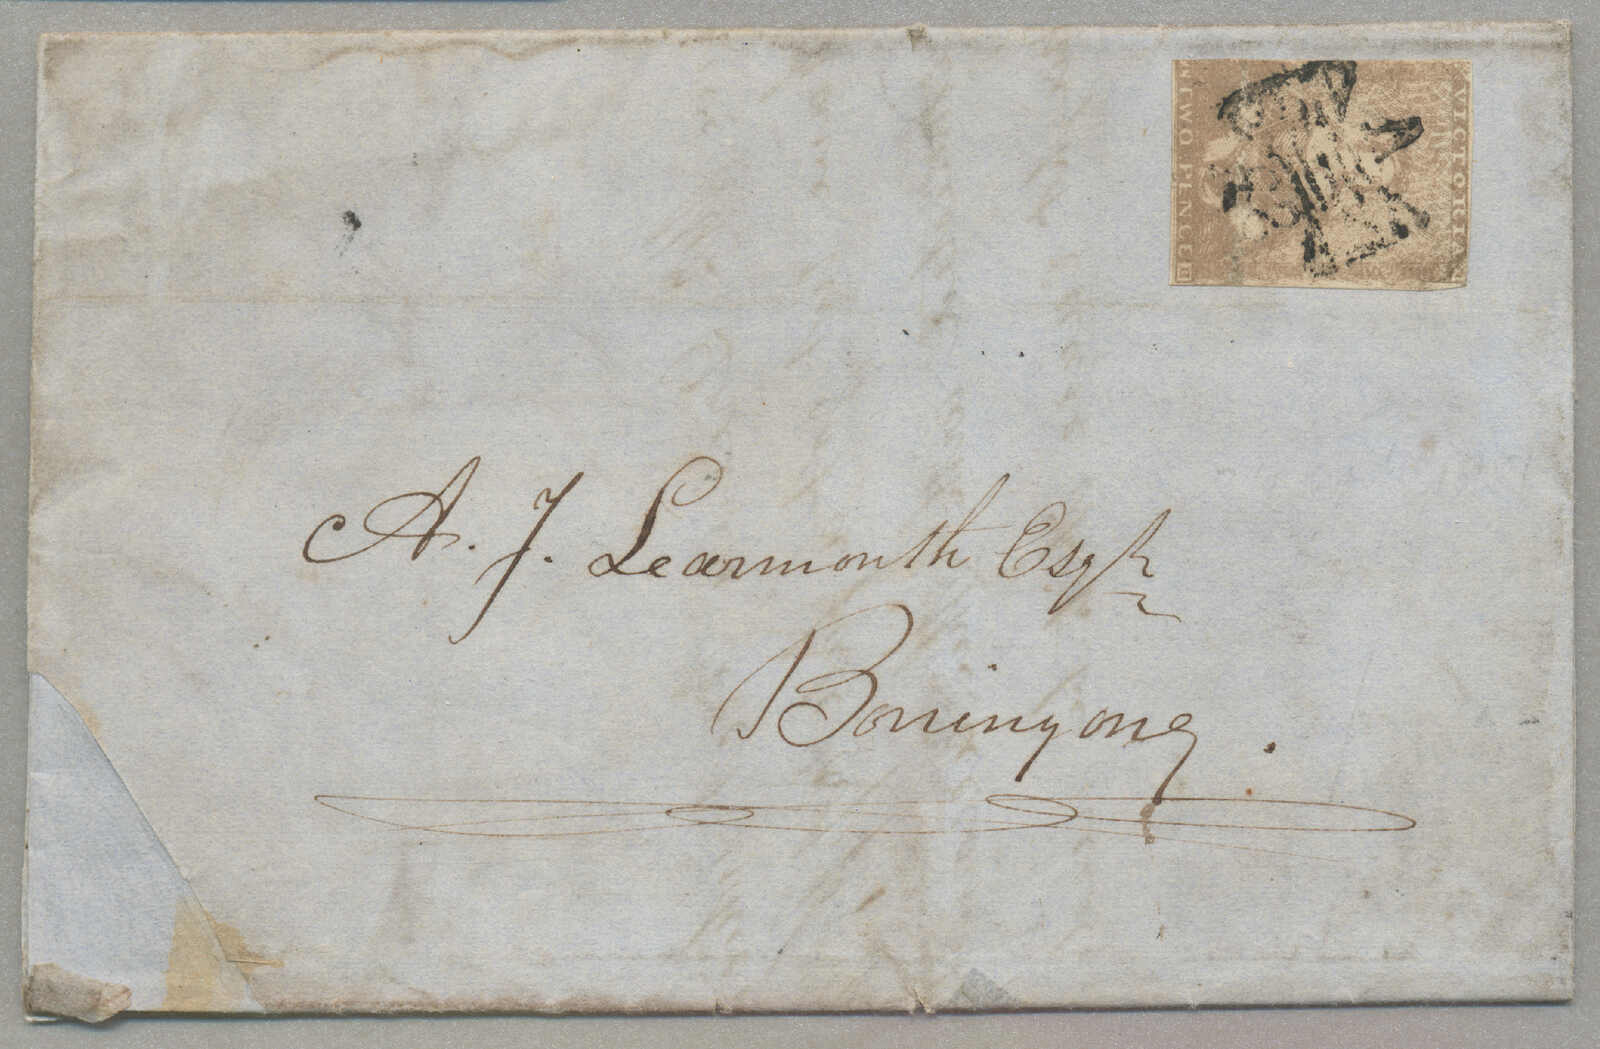 VICTORIA
TWO PENCE
A. J. Learmonth Esqr
Boninyong.